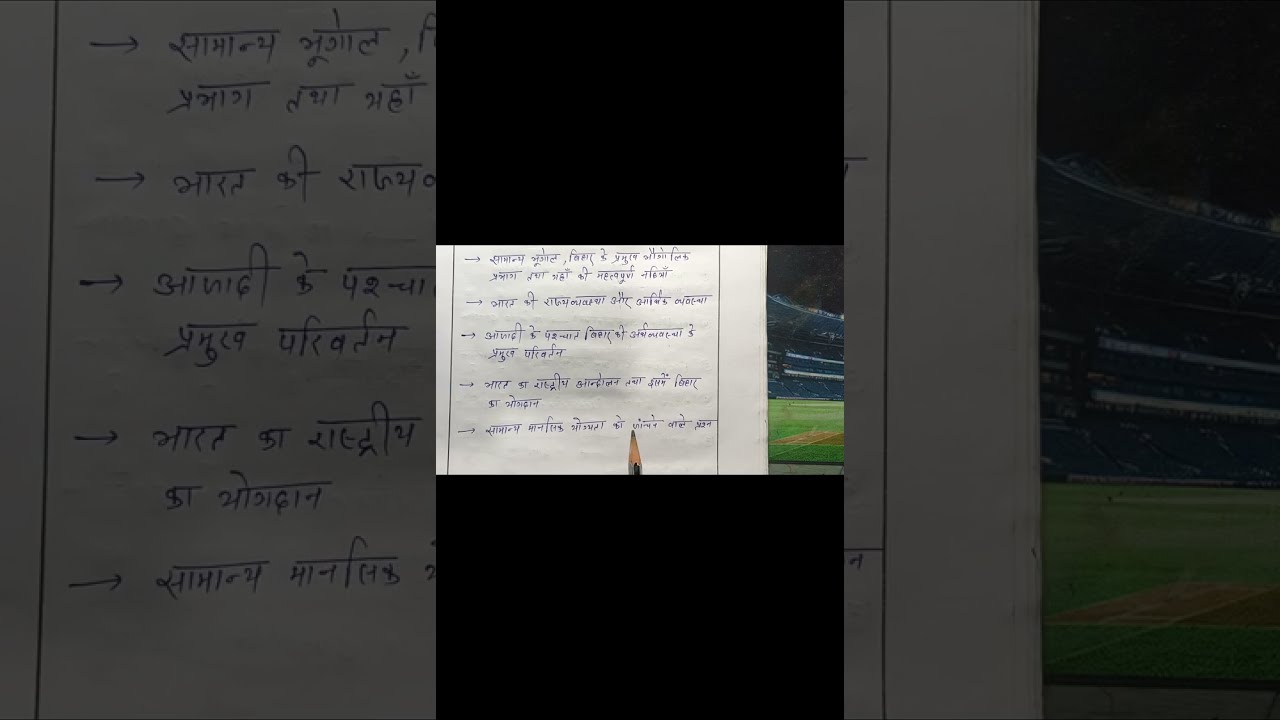 → सामान्य भूगोल, बिहार के प्रमुख भौगोलिक
प्रभाग तथा यहाँ की महत्वपूर्ण नदियाँ
→ भारत की राज्यव्यवस्था और आर्थिक व्यवस्था
→ आजादी के पश्चात बिहार की अर्थव्यवस्था के
प्रमुख परिवर्तन
→ भारत का राष्ट्रीय आन्दोलन तथा इसमें बिहार
का योगदान
→ सामान्य मानसिक योग्यता को जांचने वाले प्रश्न